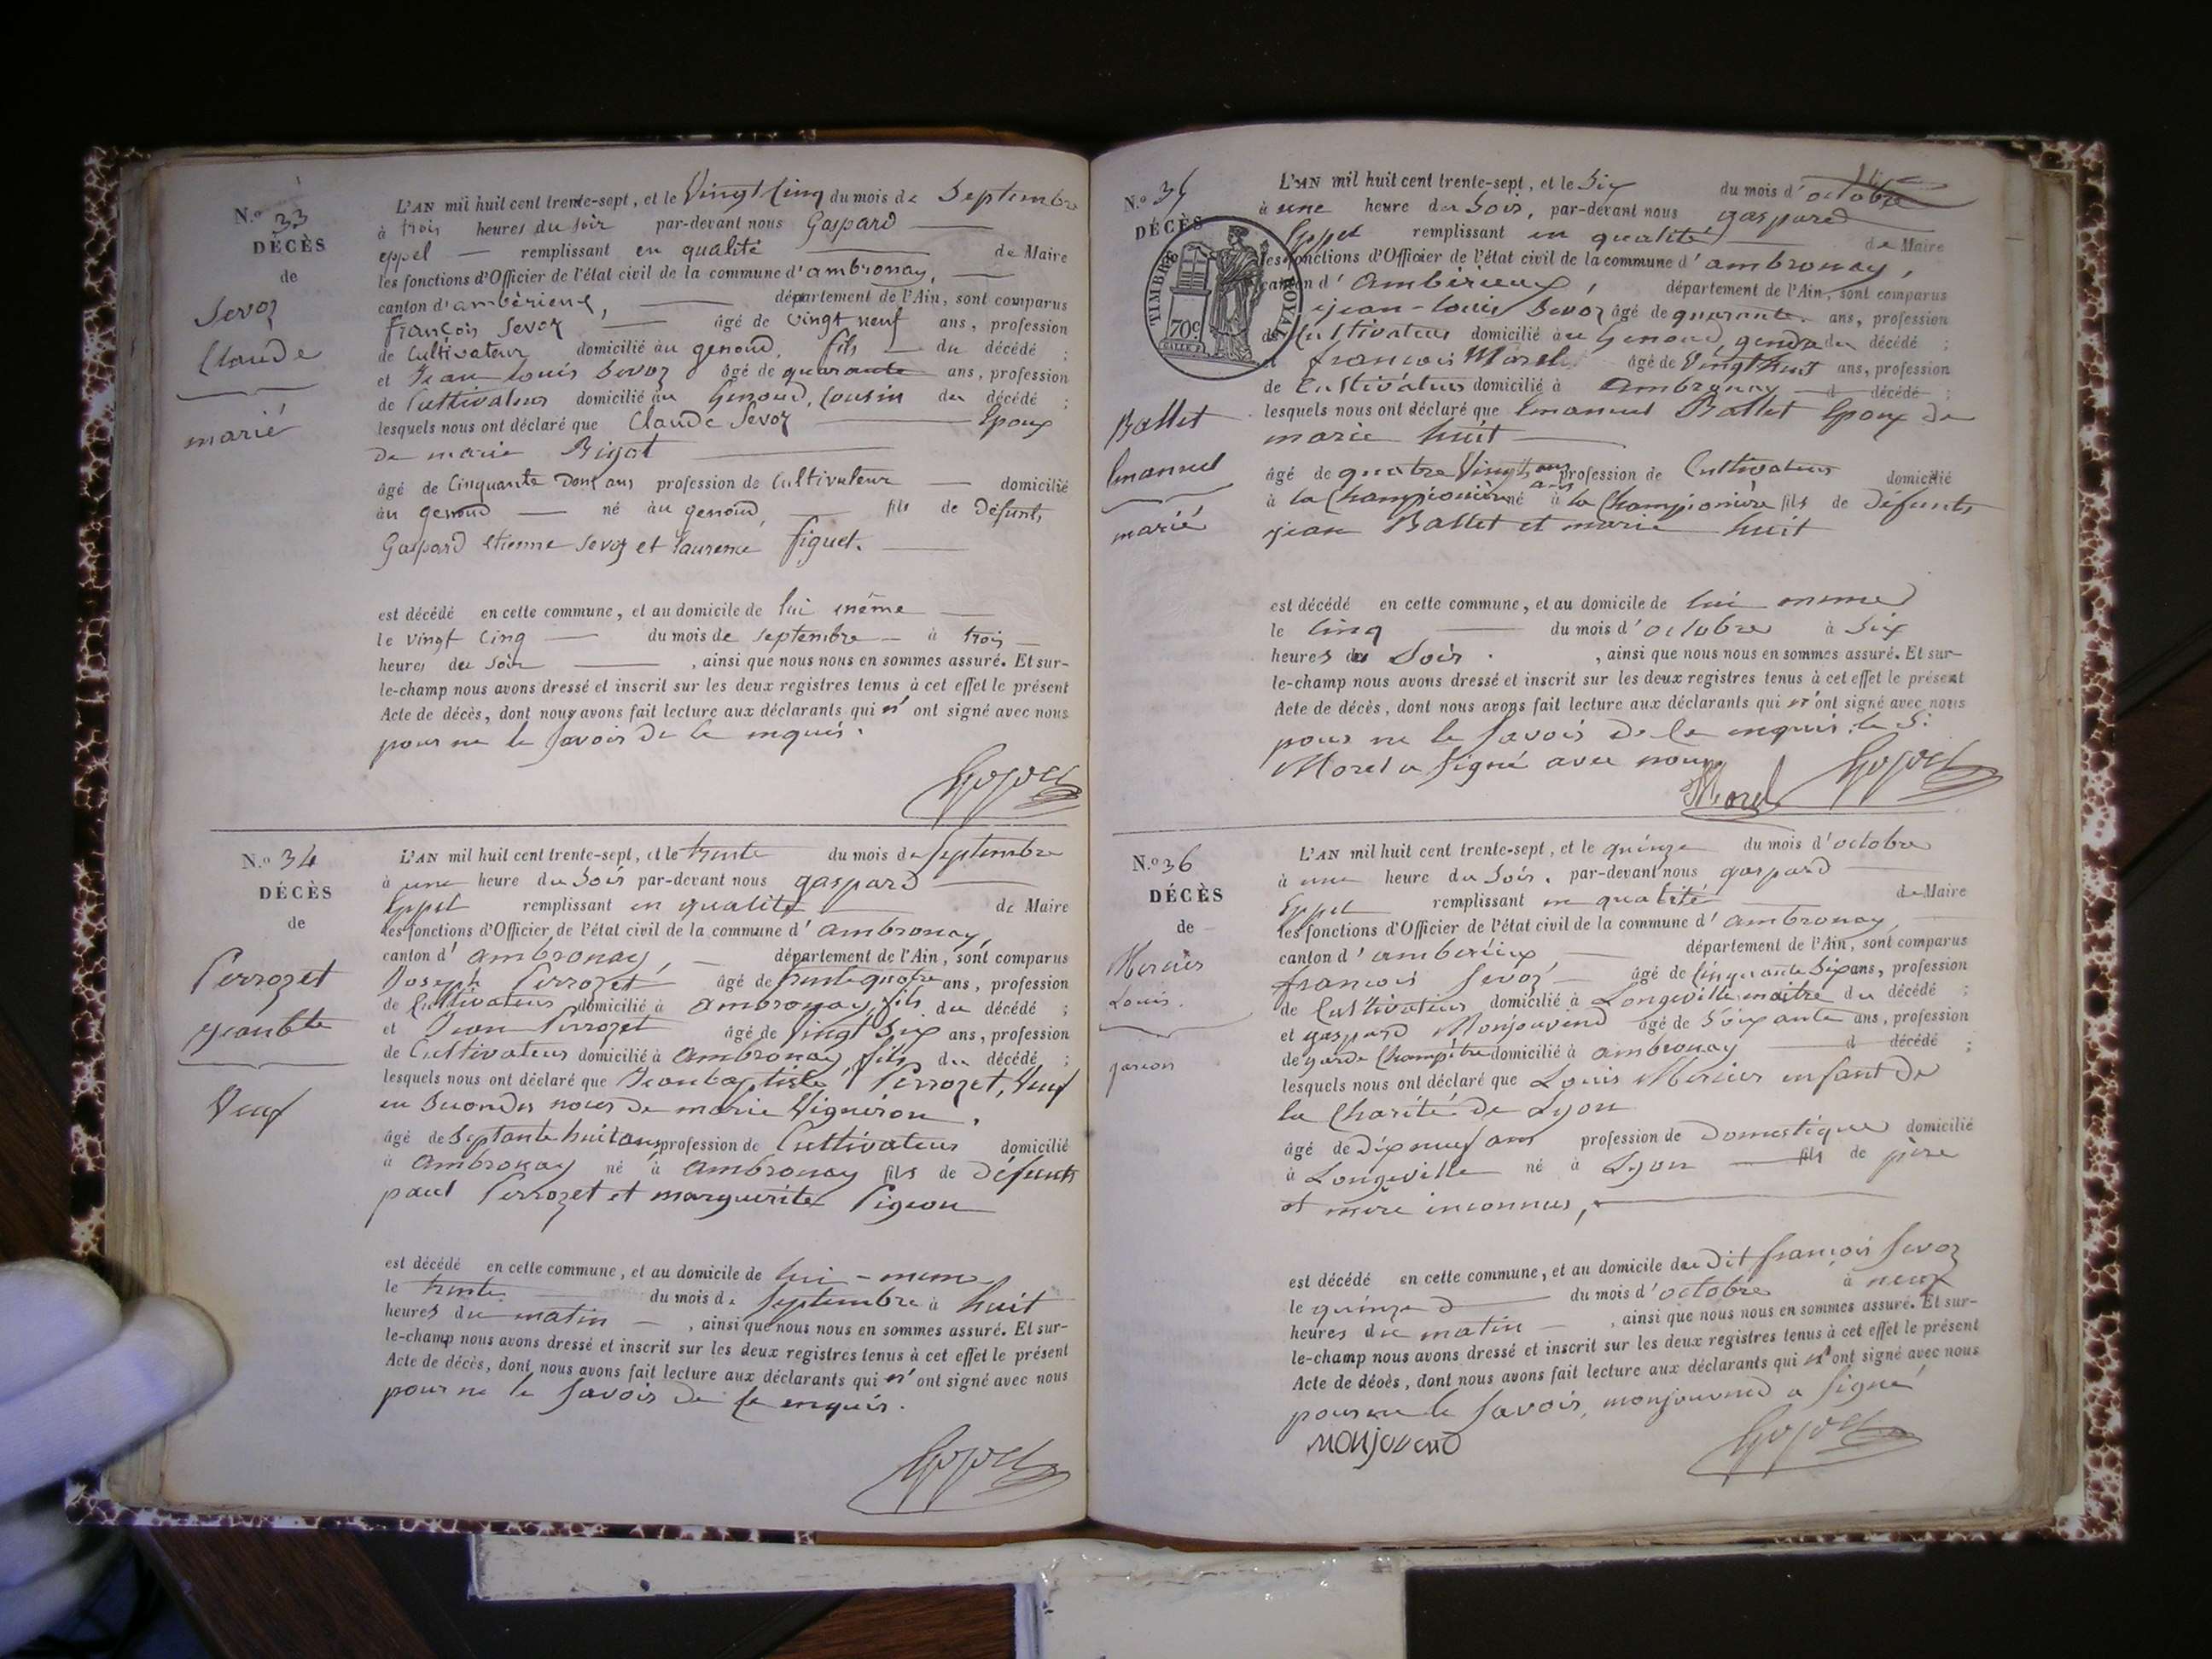 N.o 33
DÉCÈS
de
Sevoz
Claude
marié
L'AN mil huit cent trente-sept, et le Vingt Cinq du mois de Septembre
à trois heures du soir par-devant nous Gaspard
eppel remplissant en qualité de Maire
les fonctions d'Officier de l'état civil de la commune d'ambronay,
canton d'ambérieux, département de l'Ain, sont comparus
françois Sevoz âgé de vingt neuf ans, profession
de Cultivateur domicilié au genoud, fils du décédé ;
et Jean Louis Sevoz âgé de quarante ans, profession
de Cultivateur domicilié au Genoud, Cousin du décédé ;
lesquels nous ont déclaré que Claude Sevoz Epoux
de marie Bigot
âgé de Cinquante Douz ans profession de Cultivateur domicilié
au genoud né au genoud, fils de Défunts
Gaspard etienne Sevoz et laurence figuet.
est décédé en cette commune, et au domicile de lui même
le vingt Cinq du mois de septembre à trois
heures du soir , ainsi que nous nous en sommes assuré. Et sur-
le-champ nous avons dressé et inscrit sur les deux registres tenus à cet effet le présent
Acte de décès, dont nous avons fait lecture aux déclarants qui n'ont signé avec nous
pour ne le savoir de ce enquis.
N.o 34
DÉCÈS
de
Perrozet
jean bte
Veuf
L'AN mil huit cent trente-sept, et le trente du mois de septembre
à une heure du Soir par-devant nous gaspard
Eppel remplissant en qualité de Maire
les fonctions d'Officier de l'état civil de la commune d'ambronay,
canton d'ambronay, département de l'Ain, sont comparus
Joseph Perrozet âgé de trente quatre ans, profession
de Cultivateur domicilié à ambronay, fils du décédé ;
et Jean Perrozet âgé de Vingt Six ans, profession
de Cultivateur domicilié à Ambronay, fils du décédé ;
lesquels nous ont déclaré que Jean baptiste Perrozet, Veuf
en Secondes noces de marie Vigneron,
âgé de Septante huit ans profession de Cultivateur domicilié
à Ambronay né à Ambronay fils de Défunts
paul Perrozet et marguerite Pigeon
est décédé en cette commune, et au domicile de lui-meme
le trente du mois de Septembre à huit
heures du matin , ainsi que nous nous en sommes assuré. Et sur-
le-champ nous avons dressé et inscrit sur les deux registres tenus à cet effet le présent
Acte de décès, dont nous avons fait lecture aux déclarants qui n'ont signé avec nous
pour ne le savoir de ce enquis.
N.o 35
DÉCÈS
TIMBRE ROYAL
70c
Ballet
Emanuel
marié
L'AN mil huit cent trente-sept, et le Six du mois d'octobre
à une heure du Soir, par-devant nous gaspard
Eppel remplissant en qualité de Maire
les fonctions d'Officier de l'état civil de la commune d'ambronay,
canton d'Ambérieux, département de l'Ain, sont comparus
jean-louis Sevoz âgé de quarante ans, profession
de Cultivateur domicilié au Genoud, gendre du décédé ;
et francois Morel âgé de Vingt huit ans, profession
de Cultivateur domicilié à Ambronay d décédé ;
lesquels nous ont déclaré que Emanuel Ballet Epoux de
marie huit
âgé de quatre Vingts ans profession de Cultivateur domicilié
à la Championière né à la Championière fils de Défunts
jean Ballet et marie huit
est décédé en cette commune, et au domicile de lui meme
le Cinq du mois d'octobre à Six
heures du Soir , ainsi que nous nous en sommes assuré. Et sur-
le-champ nous avons dressé et inscrit sur les deux registres tenus à cet effet le présent
Acte de décès, dont nous avons fait lecture aux déclarants qui n'ont signé avec nous
pour ne le savoir de ce enquis. le S.
Morel a signé avec nous
Morel
N.o 36
DÉCÈS
de
Mercier
Louis.
garcon
L'AN mil huit cent trente-sept, et le quinze du mois d'octobre
à une heure du Soir. par-devant nous gaspard
Eppel remplissant en qualité de Maire
les fonctions d'Officier de l'état civil de la commune d'ambronay,
canton d'ambérieux, département de l'Ain, sont comparus
francois Sevoz âgé de Cinquante Six ans, profession
de Cultivateur domicilié à Longeville maitre du décédé ;
et gaspard Monjouvend âgé de Soixante ans, profession
de garde Champêtre domicilié à ambronay d décédé ;
lesquels nous ont déclaré que Louis Mercier enfant de
la Charité de Lyon
âgé de Dix neuf ans profession de Domestique domicilié
à Longeville né à Lyon fils de père
et mère inconnus,
est décédé en cette commune, et au domicile du Dit françois Sevoz
le quinze du mois d'octobre à neuf
heures du matin , ainsi que nous nous en sommes assuré. Et sur-
le-champ nous avons dressé et inscrit sur les deux registres tenus à cet effet le présent
Acte de décès, dont nous avons fait lecture aux déclarants qui n'ont signé avec nous
pour ne le savoir, monjouvend a signé
MONjOVEND